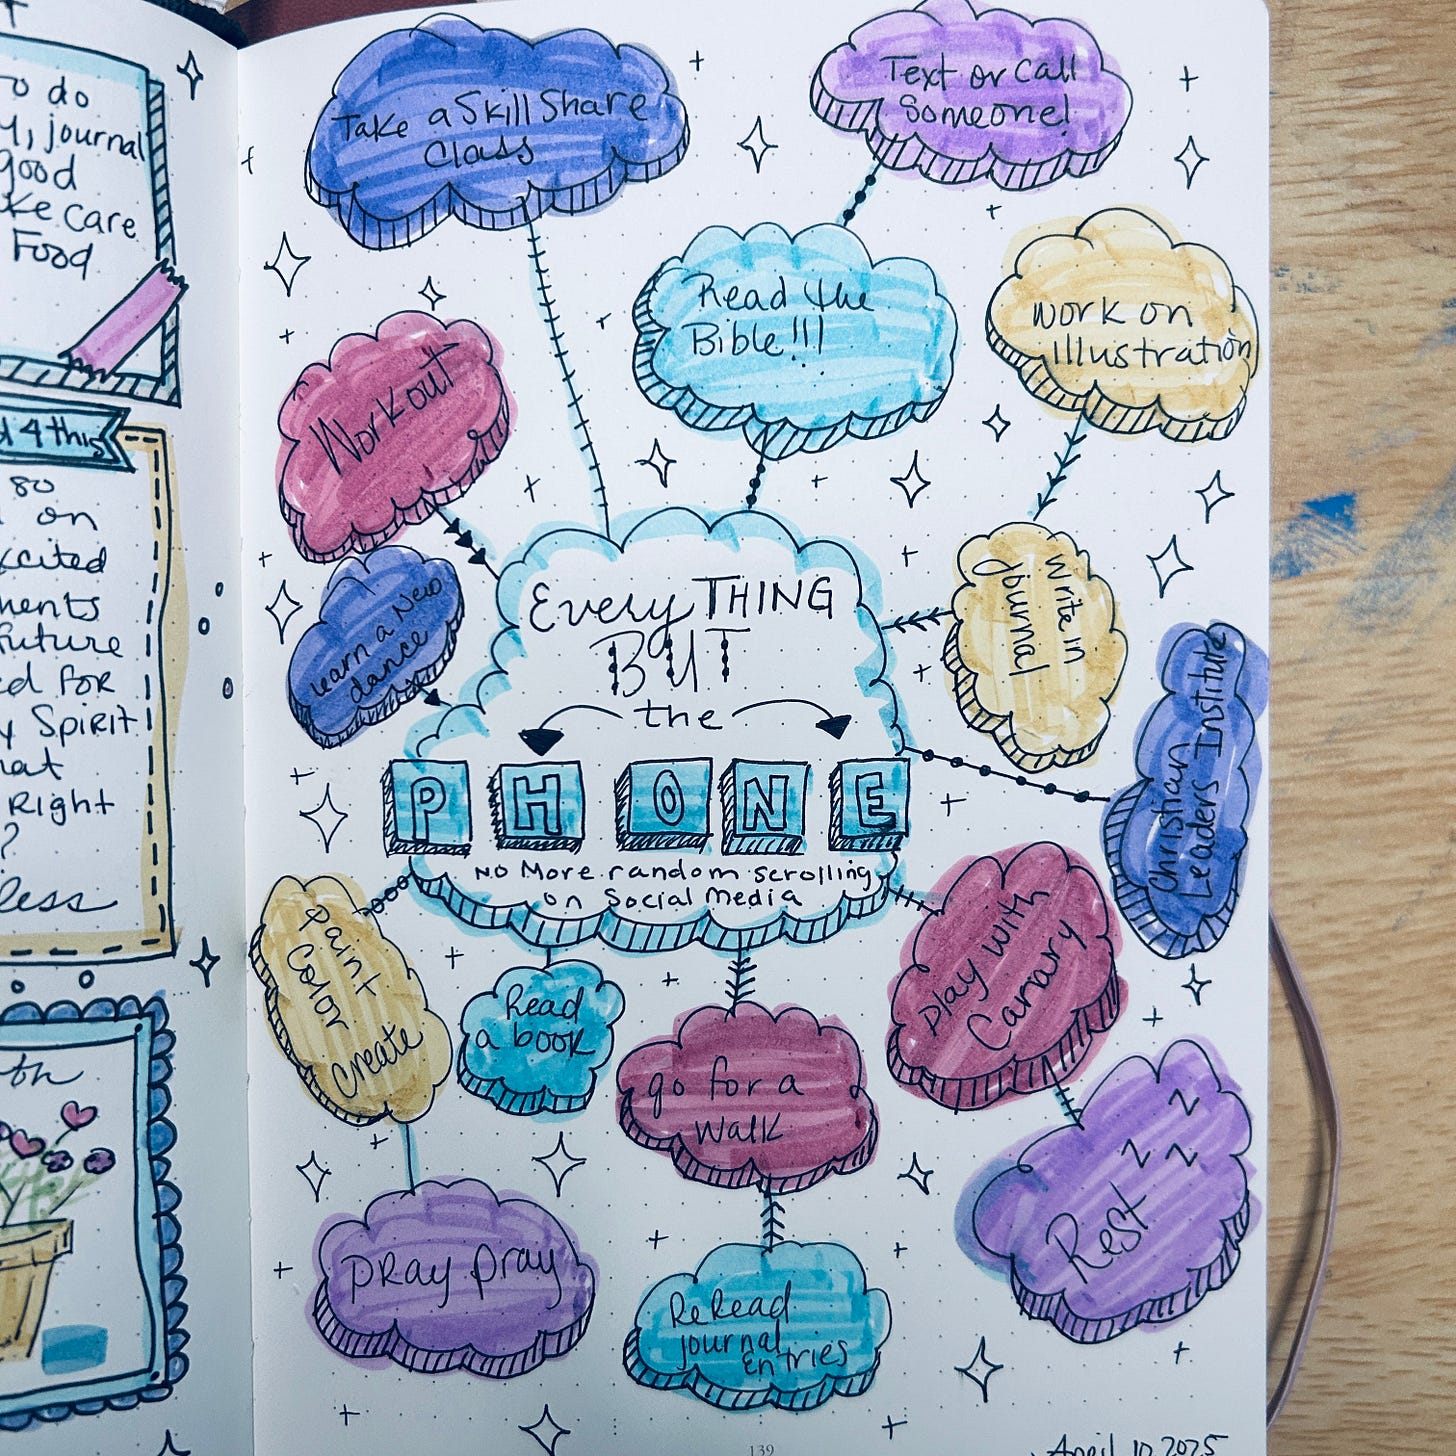 o do
y, journal
good
ke care
Food
d 4 this
so
on
xcited
ments
future
ed for
y Spirit
hat
Right
?
less
th
Take a Skill Share
Class
Text or Call
Someone!
Read the
Bible!!!
work on
illustration
Workout
Learn a New
dance
EveryTHING
BUT
the
PHONE
No More random scrolling
on Social Media
Write in
journal
Christian
Leaders Institute
Paint
Color
Create
Read
a book
go for a
walk
play with
Canary
Z
Z Z
Rest
pray pray
ReRead
journal
Entries
139
April 10, 2025